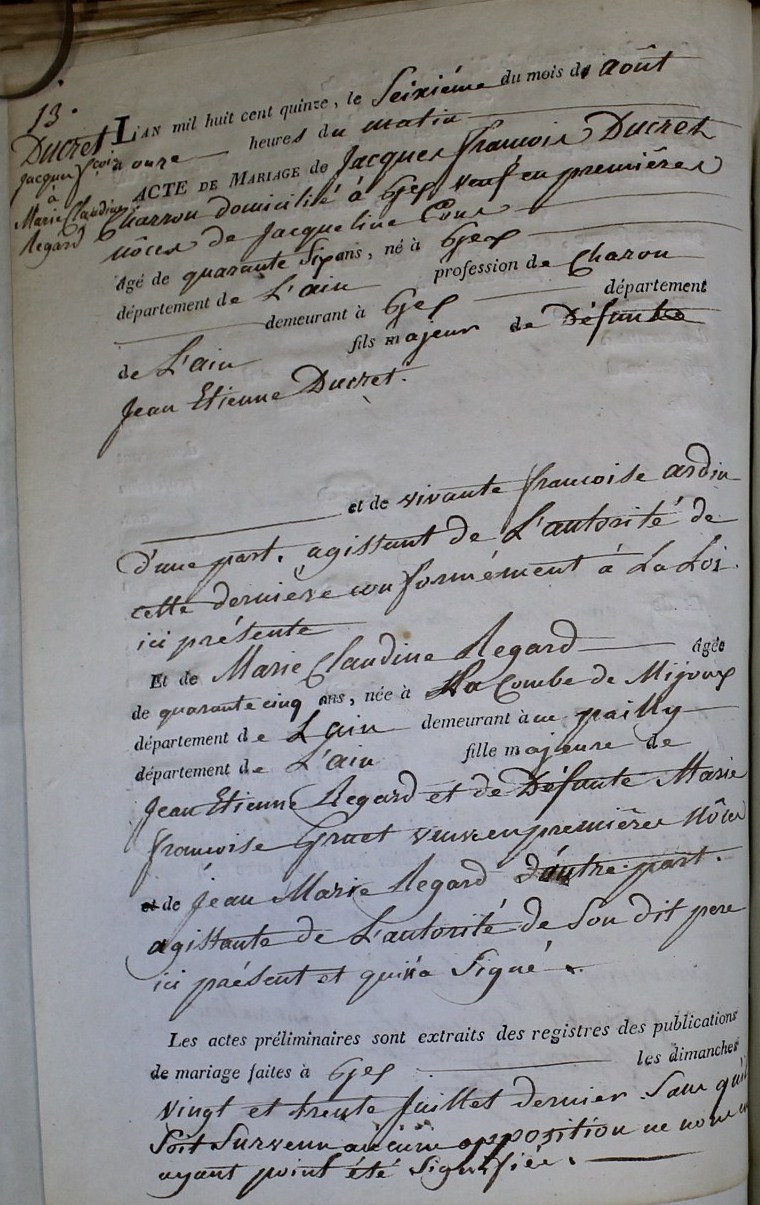 13.
Ducret
Jacques fçois
à
Marie Claudine
Regard
L'AN mil huit cent quinze, le Seixiéme du mois de Août
à onze heures du matin
ACTE DE MARIAGE de Jacques francois Ducret
Charron domicilié à Gex, veuf en premières
nôces de Jacqueline
âgé de quarante Six ans, né à Gex
département de L'ain profession de Charon
demeurant à Gex département
de L'ain fils majeur de Défunt
Jean Etienne Ducret.
et de vivante francoise ardin
d'une part, agissant de L'autorité de
cette dernière conformément à La Loi
ici présente
Et de Marie Claudine Regard âgée
de quarante cinq ans, née à La Combe de Mijoux
département de Lain demeurant à
département de L'ain fille majeure de
Jean Etienne Regard et de Défunte Marie
francoise Gruet veuve en premières Nôces
et de jean Marie Regard D'autre part.
agissante de L'autorité de Son dit pere
ici présent et qui n'a Signé.
Les actes préliminaires sont extraits des registres des publications
de mariage faites à Gex les dimanches
vingt et trente Juillet dernier Sans qu'il
Soit Survenu aucune opposition ne nous en
ayant point été Signifiée.